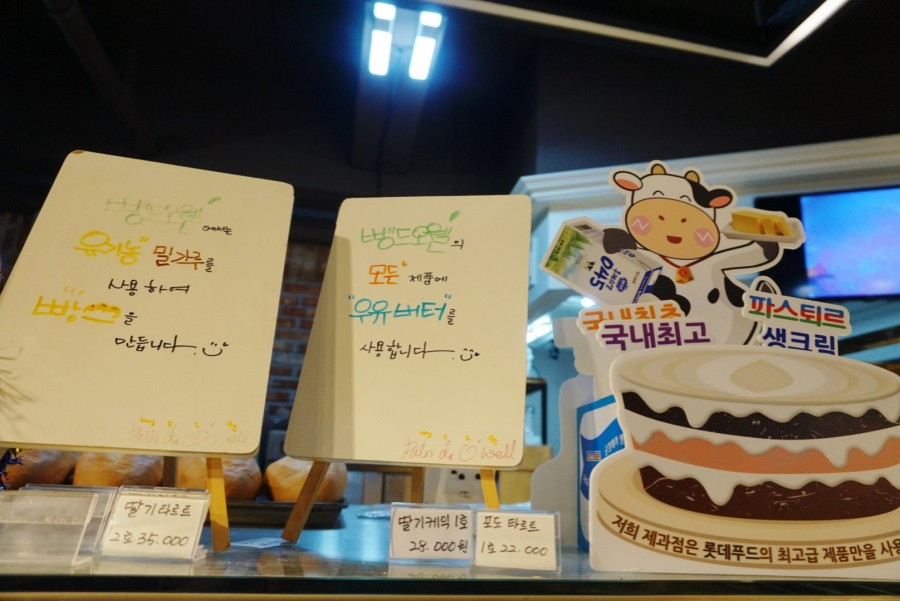 빵드오웰
에서는
유기농 밀가루를
사용하여
빵을
만듭니다.
Pain de O well
빵드오웰의
모든 제품에
"우유버터"를
사용합니다.
Pain de O well
국내최초
국내최고
파스퇴르
생크림
저희 제과점은 롯데푸드의 최고급 제품만을 사용
딸기타르트
2호 35.000
딸기케익 1호
28.000원
포도 타르트
1호 22.000